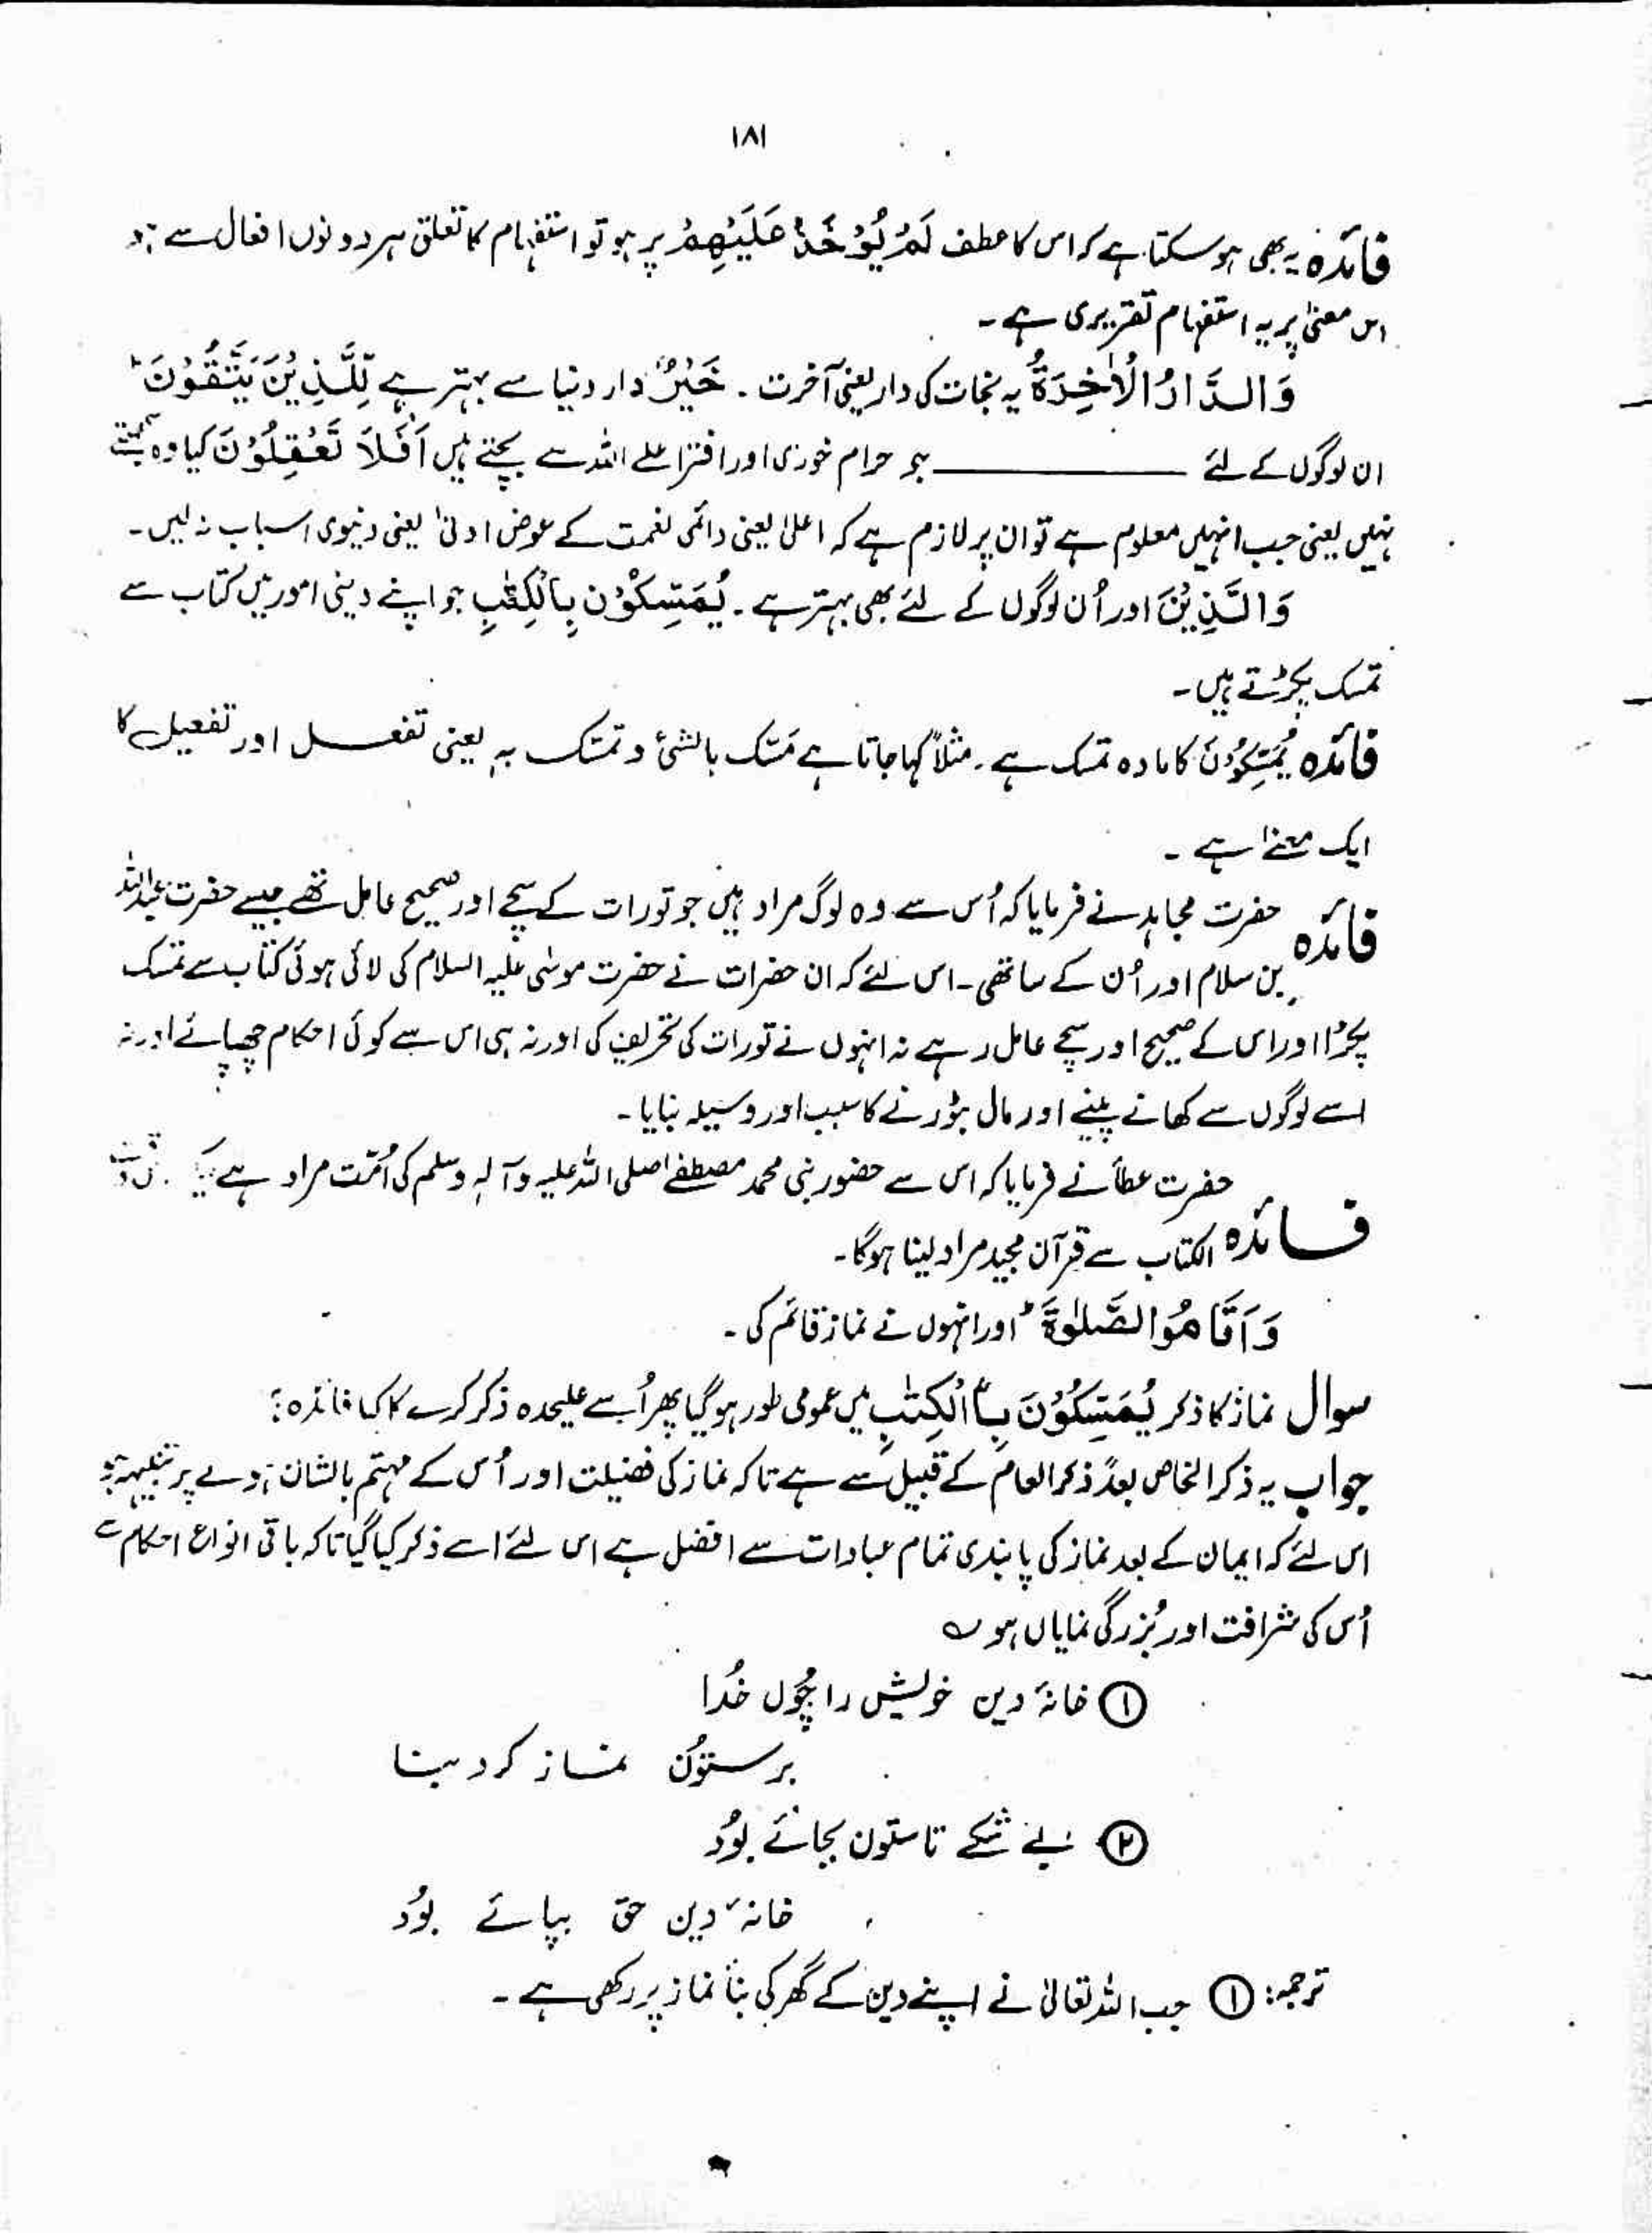 ۱۸۱
فائدہ یہ بھی ہو سکتا ہے کہ اس کا عطف لَمْ یُؤْخَذْ عَلَیْهِمْ پر ہو تو استفہام کا تعلق ہر دونوں افعال سے ہو
اس معنیٰ پر یہ استفہام تقریری ہے ۔
وَالدَّارُ الْاٰخِرَةُ یہ نجات کی دار یعنی آخرت ۔ خَیْرٌ دار دنیا سے بہتر ہے لِّلَّذِیْنَ یَتَّقُوْنَ ؕ
ان لوگوں کے لئے ــــــــــ جو حرام خوری اور افترا علے اللہ سے بچتے ہیں اَفَلَا تَعْقِلُوْنَ کیا وہ سمجھتے
نہیں یعنی جب انہیں معلوم ہے تو ان پر لازم ہے کہ اعلیٰ یعنی دائمی نعمت کے عوض ادنیٰ یعنی دنیوی اسباب نہ لیں ۔
وَالَّذِیْنَ اور اُن لوگوں کے لئے بھی بہتر ہے ۔ یُمَسِّکُوْنَ بِالْکِتٰبِ جو اپنے دینی امور میں کتاب سے
تمسک پکڑتے ہیں ۔
فائدہ یُمَسِّکُوْنَ کا مادہ تمسک ہے ۔ مثلاً کہا جاتا ہے مَسَّک بالشئ و تمسّک بہ یعنی تفعل اور تفعیل کا
ایک معنےٰ ہے ۔
فائدہ حضرت مجاہد نے فرمایا کہ اُس سے وہ لوگ مراد ہیں جو تورات کے سچے اور صحیح عامل تھے جیسے حضرت عبداللہ
بن سلام اور اُن کے ساتھی ۔ اس لئے کہ ان حضرات نے حضرت موسٰی علیہ السلام کی لائی ہوئی کتاب سے تمسک
پکڑا اور اس کے صحیح اور سچے عامل رہے نہ انہوں نے تورات کی تحریف کی اور نہ ہی اس سے کوئی احکام چھپائے اور نہ
اسے لوگوں سے کھانے پینے اور مال بٹورنے کا سبب اور وسیلہ بنایا ۔
حضرت عطأ نے فرمایا کہ اس سے حضور نبی محمد مصطفےٰ صلی اللہ علیہ وآلہٖ وسلم کی اُمّت مراد ہے
فائدہ الکتاب سے قرآن مجید مراد لینا ہوگا ۔
وَاَقَامُوا الصَّلٰوةَ ؕ اور انہوں نے نماز قائم کی ۔
سوال نماز کا ذکر یُمَسِّکُوْنَ بِالْکِتٰبِ میں عمومی طور ہو گیا پھر اُسے علیحدہ ذکر کرنے کا کیا فائدہ؟
جواب یہ ذکر الخاص بعد ذکر العام کے قبیل سے ہے تاکہ نماز کی فضیلت اور اُس کے مہتم بالشان ہونے پر تنبیہہ ہو
اس لئے کہ ایمان کے بعد نماز کی پابندی تمام عبادات سے افضل ہے اس لئے اسے ذکر کیا گیا تاکہ باقی انواع احکام سے
اُس کی شرافت اور بُزرگی نمایاں ہو ؎
① خانۂ دین خویش را چُوں خُدا
بر ستوُن نماز کرد بنا
② بے شکے تا ستون بجائے بوُد
خانۂ دین حق بپائے بوُد
ترجمہ: ① جب اللہ تعالیٰ نے اپنے دین کے گھر کی بنأ نماز پر رکھی ہے ۔